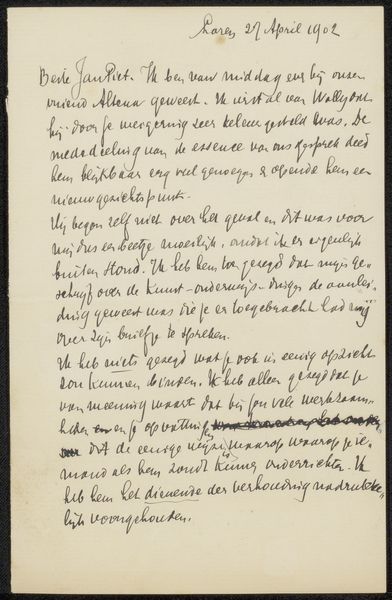 Laren 27 April 1902
Beste Jan Piet. Ik ben van middag eens bij onzen
vriend Altena geweest. Ik wist al van Wally dat
hij door je weigering zeer teleur gesteld was. De
mededeeling van de essence van ons gesprek deed
hem blijkbaar erg veel genoegen & opende hem een
nieuw gezichtspunt.
Hij begon zelf niet over het geval en dit was voor
mij dus een beetje moeilijk, omdat ik er eigenlijk
buiten stond. Ik heb hem toen gezegd dat mijn ge-
schrijf over de Kunst-onderwijs-dinges de aanlei-
ding geweest was die je er toegebracht had mij
over zijn briefje te spreken.
Ik heb niets gezegd wat je ook in eenig opzicht
zou kunnen binden. Ik heb alleen gezegd dat je
van meening waart dat bij jou vele werkzaam-
heden en je opvatting
dit de eenige wijze is waarop waarop je ie-
mand als hem zoudt kunnen onderrichten. Ik
heb hem het dienende der verhouding nadrukke-
lijk voorgehouden.